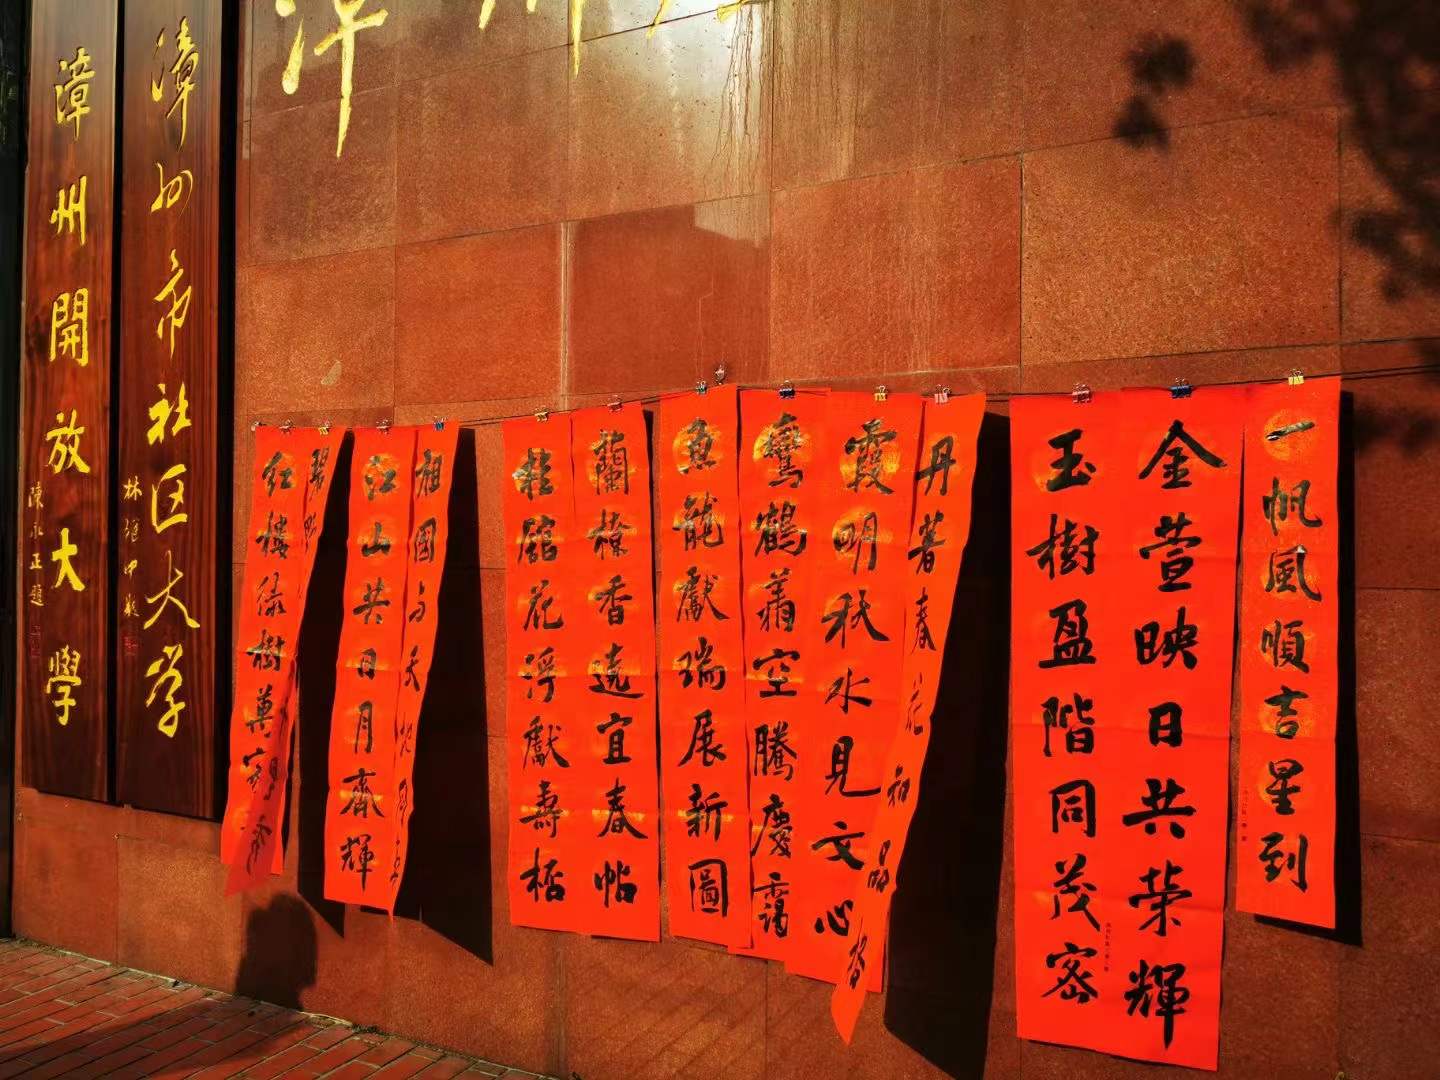 一帆風順吉星到
金萱映日共荣輝
玉樹盈階同茂密
丹著春花和品格
霞明秋水見文心
鸞鶴翥空騰慶靄
魚龍獻瑞展新圖
蘭橑香遶宜春帖
桂館花浮獻壽桮
祖國与天地同
江山共日月齊輝
碧野
红樓绿樹萬家
漳
漳州市社区大学
林继中题
漳州開放大學
陳永正題